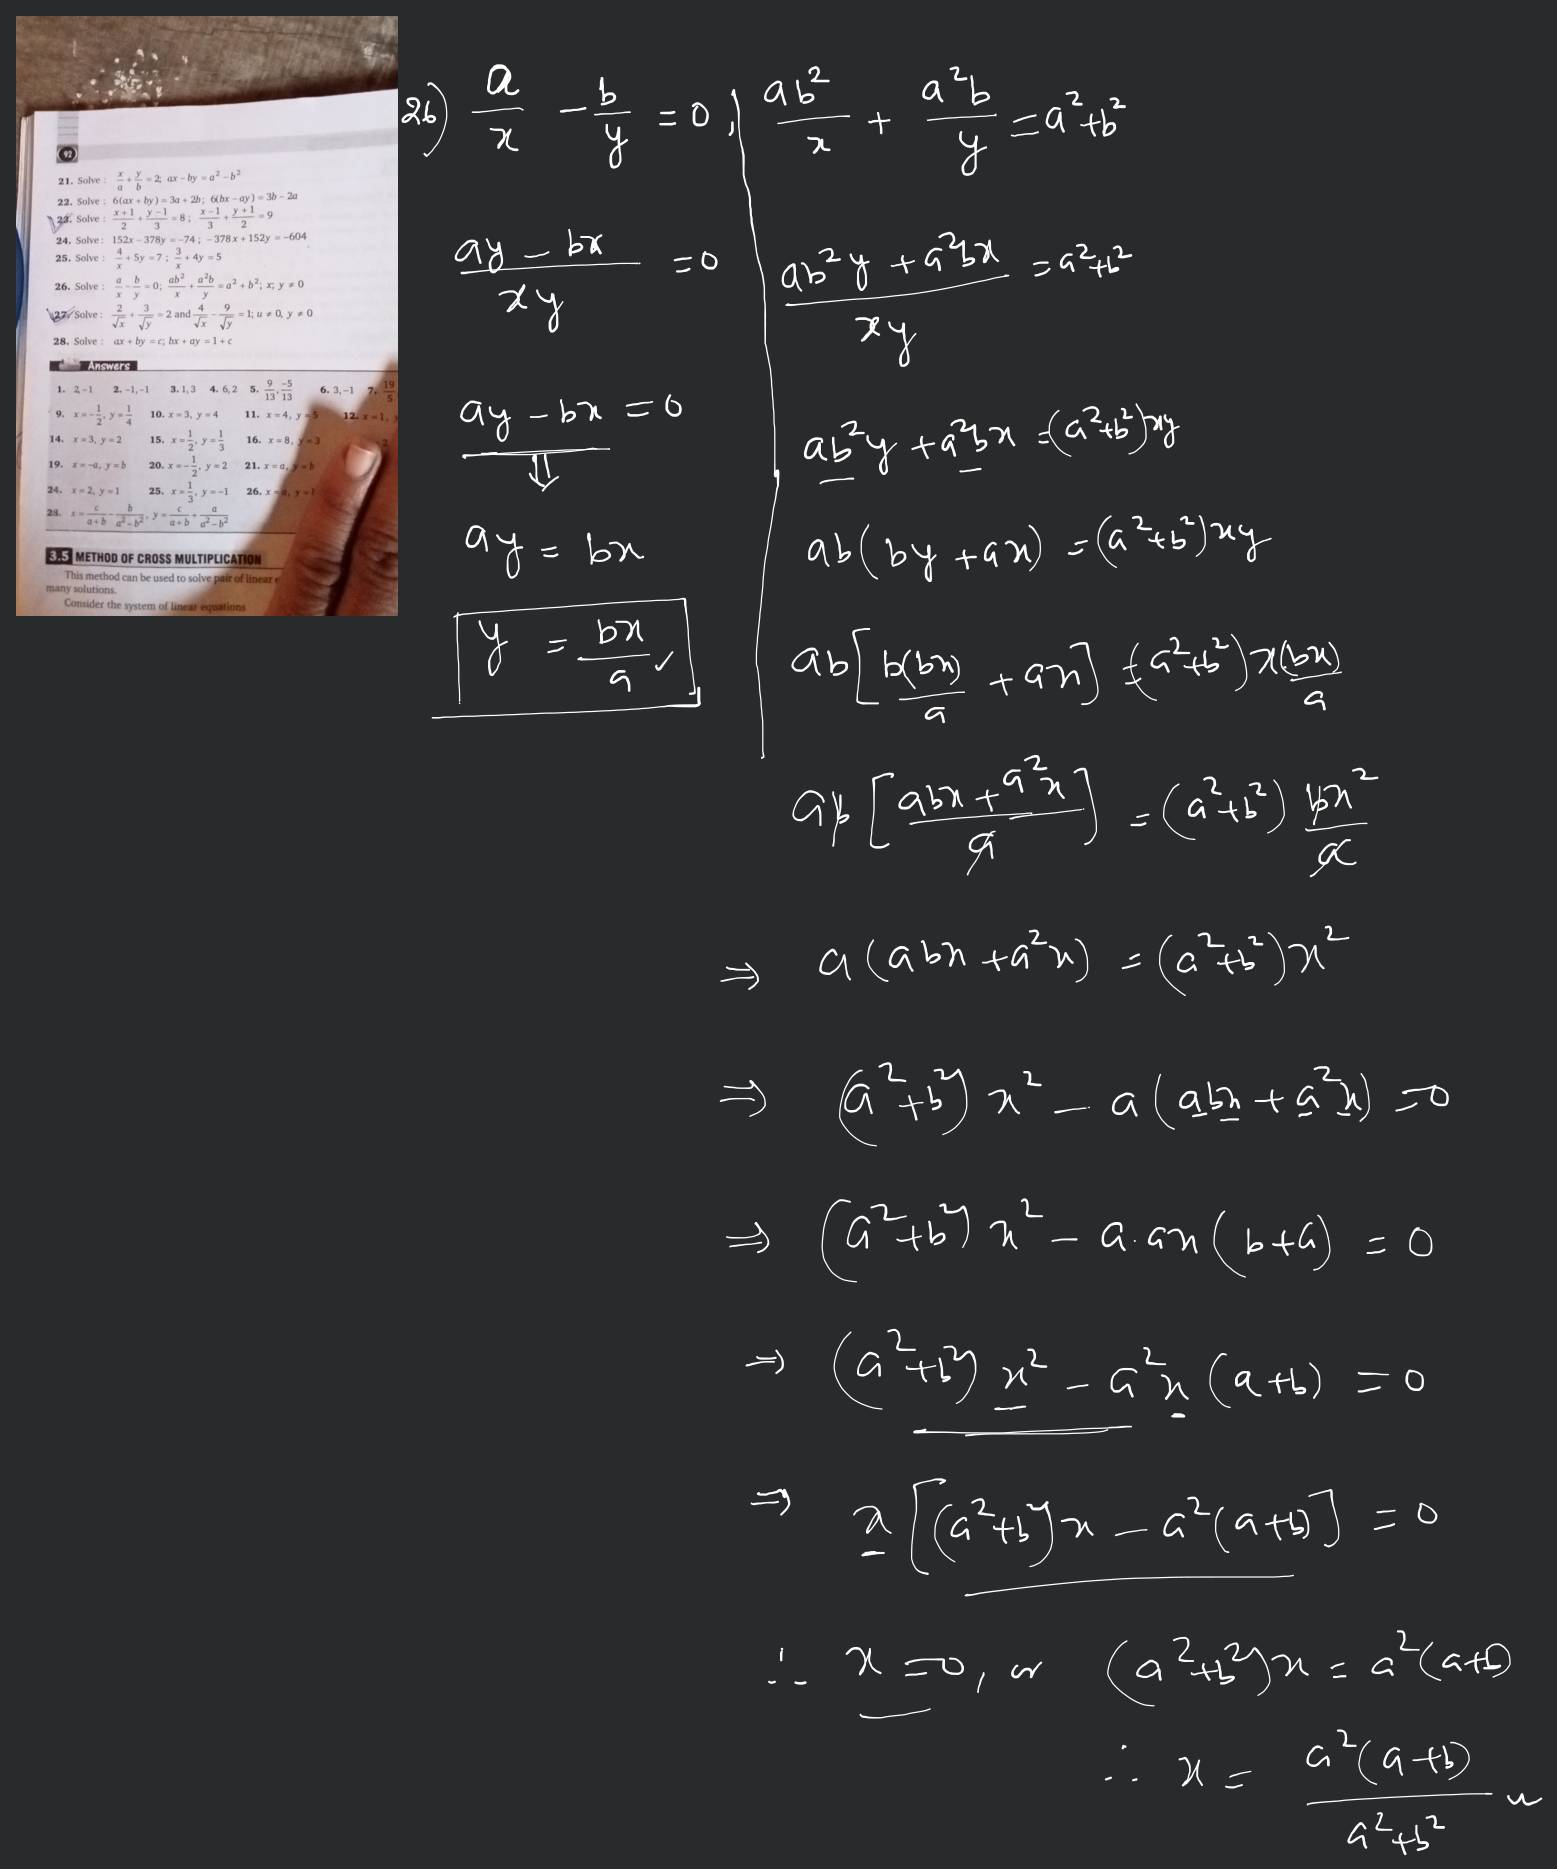 92
21. Solve : x/a + y/b = 2; ax - by = a² - b²
22. Solve : 6(ax + by) = 3a + 2b; 6(bx - ay) = 3b - 2a
23. Solve : (x+1)/2 + (y-1)/3 = 8; (x-1)/3 + (y+1)/2 = 9
24. Solve : 152x - 378y = -74; -378x + 152y = -604
25. Solve : 4/x + 5y = 7; 3/x + 4y = 5
26. Solve : a/x - b/y = 0; ab²/x + a²b/y = a² + b²; x, y ≠ 0
27. Solve : 2/√x + 3/√y = 2 and 4/√x - 9/√y = 1; u ≠ 0, y ≠ 0
28. Solve : ax + by = c; bx + ay = 1 + c
Answers
1. 2, -1 2. -1, -1 3. 1, 3 4. 6, 2 5. 9/13, -5/13 6. 3, -1 7. 19/5
9. x = -1/2, y = 1/4 10. x = 3, y = 4 11. x = 4, y = 5 12. x = 1,
14. x = 3, y = 2 15. x = 1/2, y = 1/3 16. x = 8, y = 3
19. x = -a, y = b 20. x = -1/2, y = 2 21. x = a, y = b
24. x = 2, y = 1 25. x = 1/3, y = -1 26. x = a, y =
28. x = c/(a+b) - b/(a²-b²), y = c/(a+b) + a/(a²-b²)
3.5 METHOD OF CROSS MULTIPLICATION
This method can be used to solve pair of linear
many solutions.
Consider the system of linear equations
26) a/x - b/y = 0,
(ay - bx)/xy = 0
ay - bx = 0
⇓
ay = bx
y = bx/a ✓
ab²/x + a²b/y = a²+b²
(ab²y + a²bx)/xy = a²+b²
ab²y + a²bx = (a²+b²)xy
ab(by + ax) = (a²+b²)xy
ab[b(bx)/a + ax] = (a²+b²)x(bx)/a
ab[(abx + a²x)/a] = (a²+b²) bx²/a
⇒ a(abx + a²x) = (a²+b²)x²
⇒ (a²+b²)x² - a(abx + a²x) = 0
⇒ (a²+b²)x² - a.ax(b+a) = 0
⇒ (a²+b²)x² - a²x(a+b) = 0
⇒ x[(a²+b²)x - a²(a+b)] = 0
∴ x = 0, or (a²+b²)x = a²(a+b)
∴ x = a²(a+b)/(a²+b²)